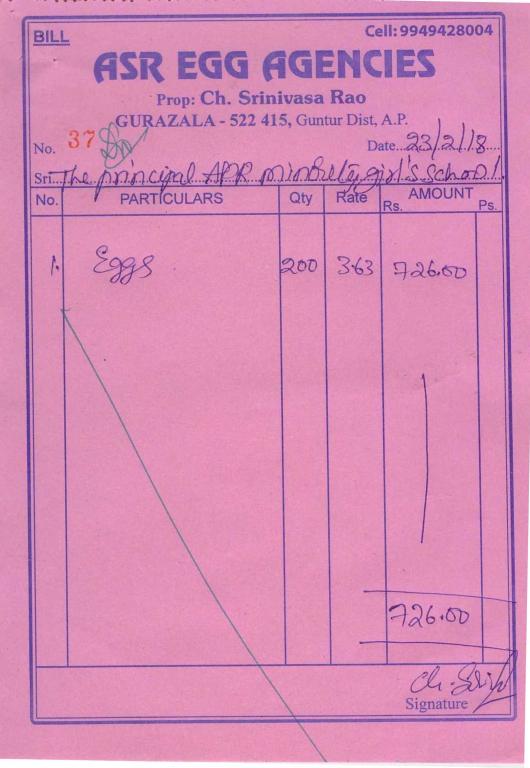 BILL Cell: 9949428004
ASR EGG AGENCIES
Prop: Ch. Srinivasa Rao
GURAZALA - 522 415, Guntur Dist, A.P.
No. 37 Date 23/2/18
Sri The principal APR minority girl's school
No. PARTICULARS Qty Rate AMOUNT
Rs. Ps.
1. Eggs 200 3.63 726.00
726.00
Signature